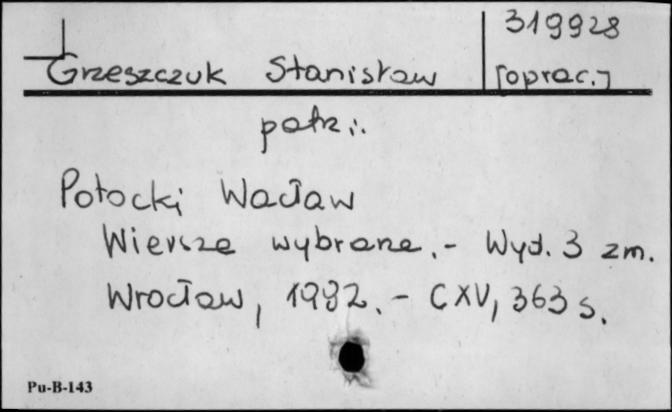 319928
Grzeszczuk Stanisław [oprac.]
patrz:
Potocki Wacław
Wiersze wybrane. - Wyd. 3 zm.
Wrocław, 1992. - CXV, 363 s.
Pu-B-143